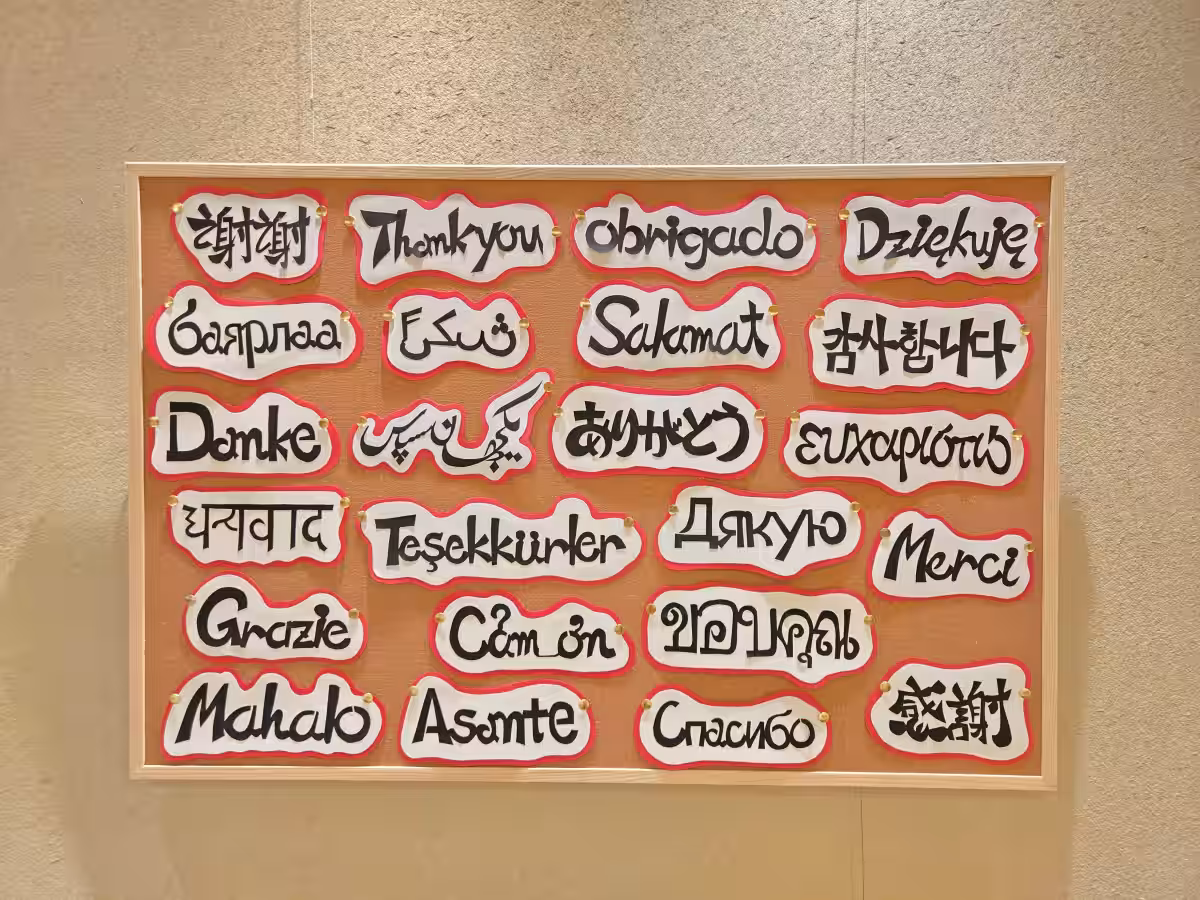 謝謝
Thank you
obrigado
Dziękuję
баярлаа
شكراً
Salamat
감사합니다
Danke
ありがとう
ευχαριστώ
धन्यवाद
Teşekkürler
Дякую
Merci
Grazie
Cảm ơn
ขอบคุณ
Mahalo
Asante
Спасибо
感謝